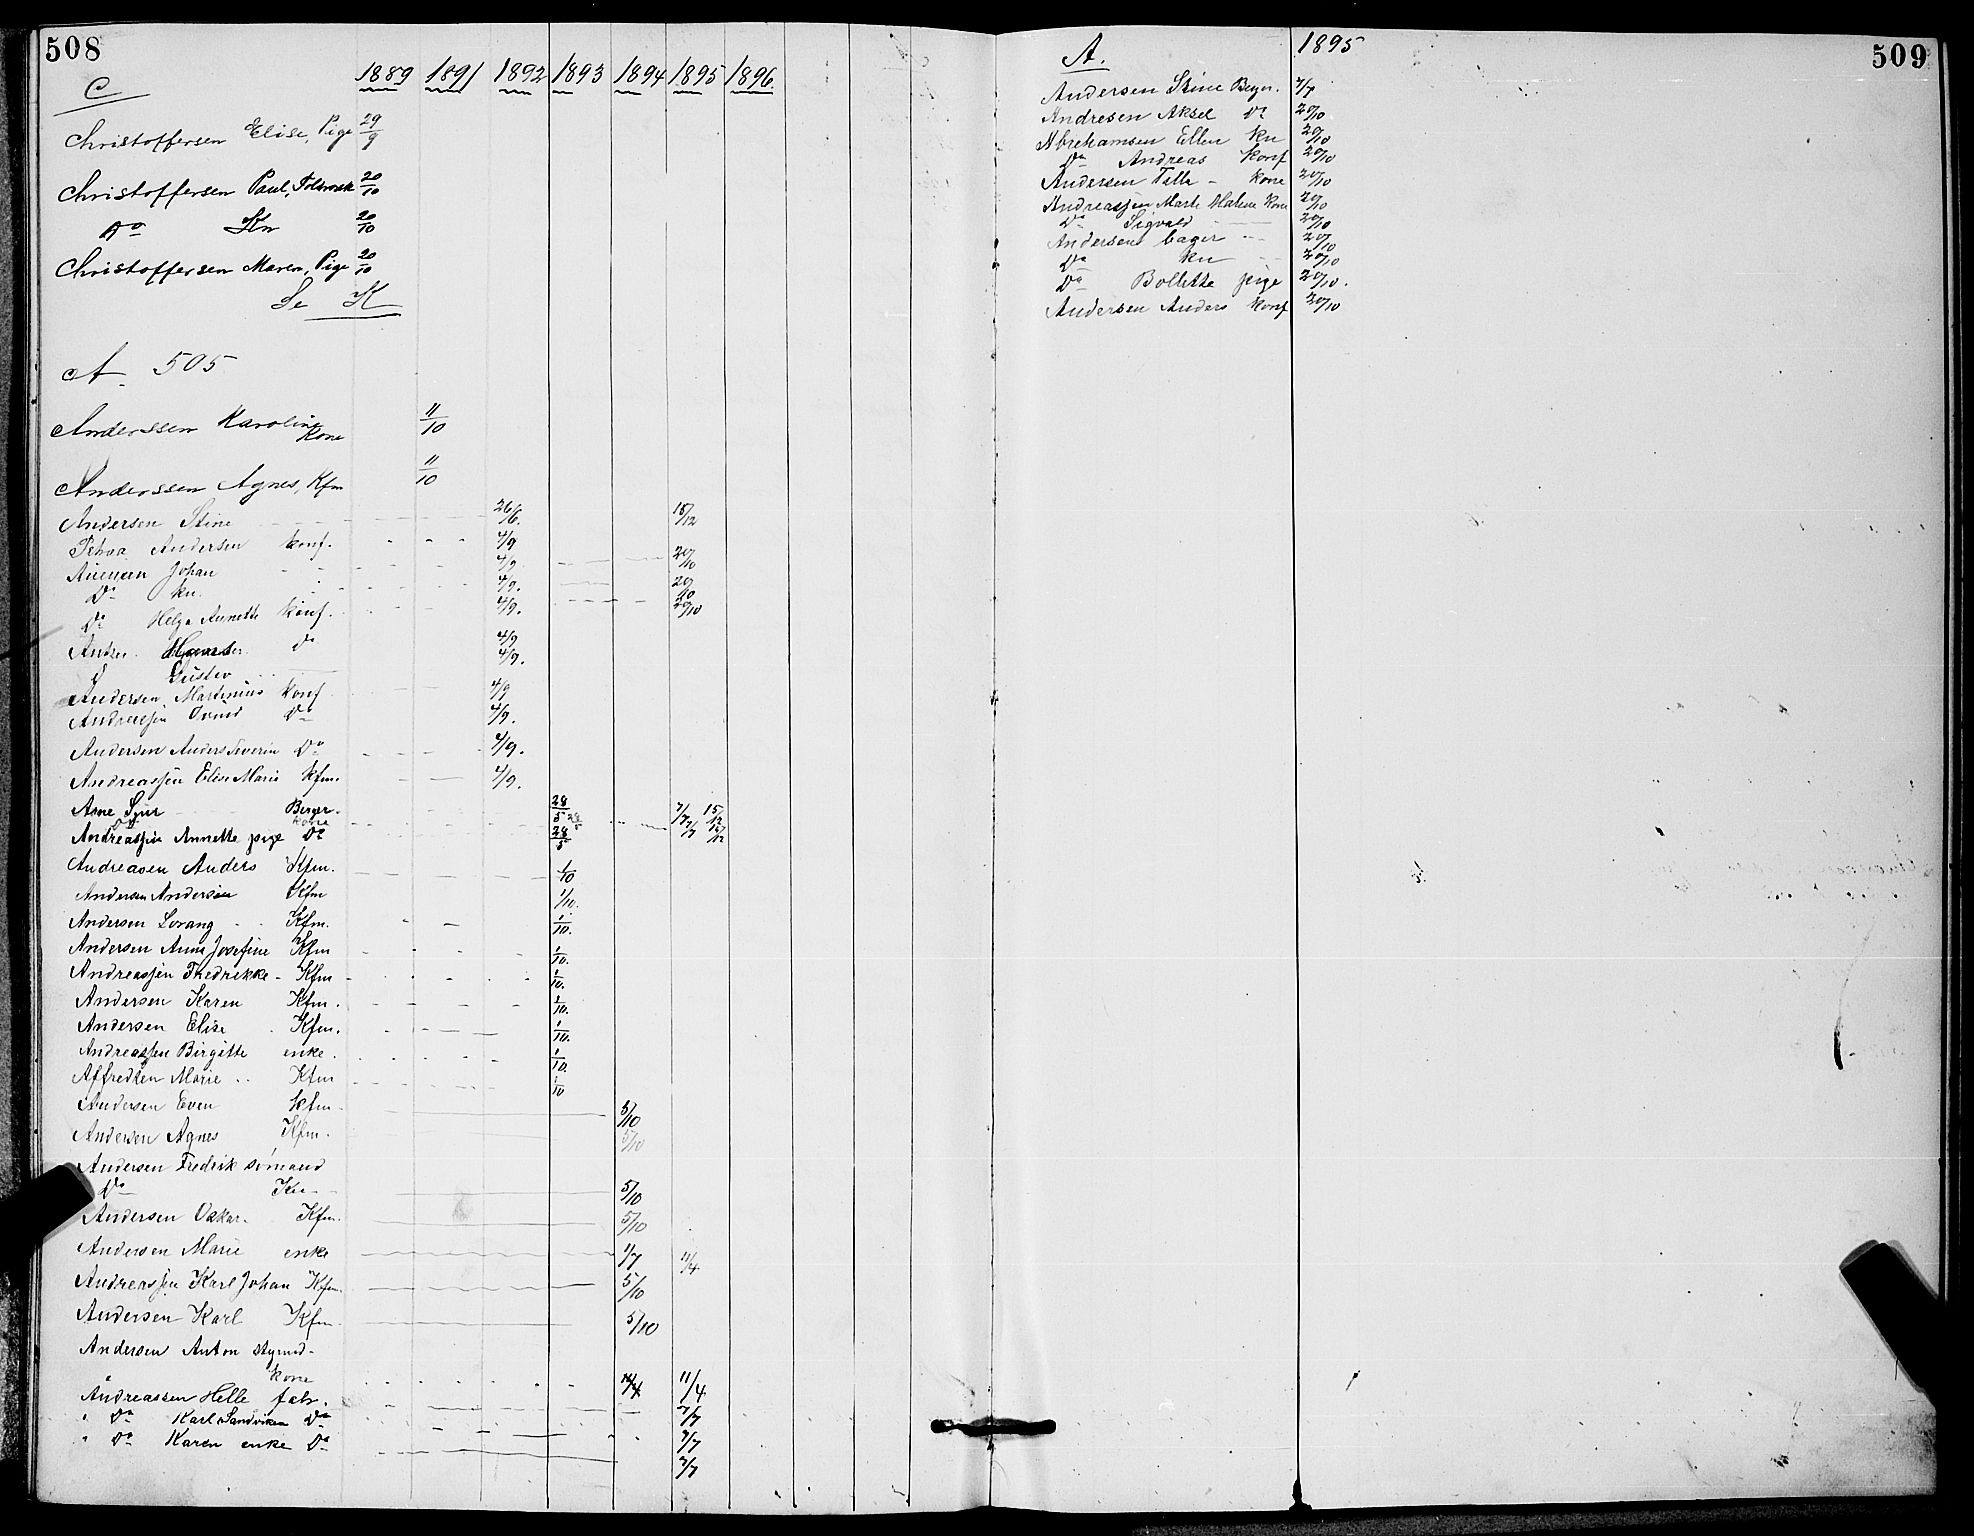 508
C 1889 1891 1892 1893 1894 1895 1896.
Christoffersen Elise, Pige 29/9
Christoffersen Paul, 20/10
Do Kn 20/10
Christoffersen Maren, Pige 20/10
Se K
A. 505
Anderssen Karoline Kone 11/10
Anderssen Agnes, Kfm 11/10
Andersen Stine 26/6. 15/12
Andersen konf. 4/9
Johan 4/9 20/10
Do kn. 4/9. 20/10
Do Helga Annette Konf. 4/9. 20/10
Do 4/9
Gustav 4/9.
Andersen Martinius konf 4/9
Andreassen Do 4/9.
Andersen Anders Severin Do 4/9.
Andreassen Elise Marie Kfm. 4/9.
Arne Berger. 28/5 7/7 15/12
kone 28/5
Andreassen Annette pige Do 28/5 7/7 15/12
Andreasen Anders Kfm. 1/10
Andersen Andersine Kfm 1/10.
Andersen Lorang Kfm. 1/10.
Andersen Anna Josefine Kfm 1/10.
Andreassen Fredrikke - Kfm 1/10.
Andersen Karen Kfm. 1/10.
Andersen Elise Kfm. 1/10.
Andreassen Birgitte enke 1/10.
Marie Kfm 1/10
Andersen Even Kfm 5/10
Andersen Agnes Kfm. 5/10
Andersen Fredrik sømand
Do Kn 5/10
Andersen Oskar. Kfm. 5/10
Andersen Marie enke 1/7 11/4
Andreassen Karl Johan Kfm. 5/10
Andersen Karl Kfm 5/10
Andersen Anton
kone 11/4
Andreassen Helle fabr. 7/7
" Do Karl Sandviken Do 7/7
" Do Karen enke Do 7/7
A. 1895 509
Andersen Stine 7/7
Andresen Aksel Do 20/10
Abrehamsen Ellen kn 20/10
Do Andreas konf 20/10
Andersen - kone 20/10
Andreassen Marte Malene kone 20/10
Do Sigvald 20/10
Andersen bager 20/10
Do kn 20/10
Do Bollette pige 20/10.
Andersen Anders konf 20/10